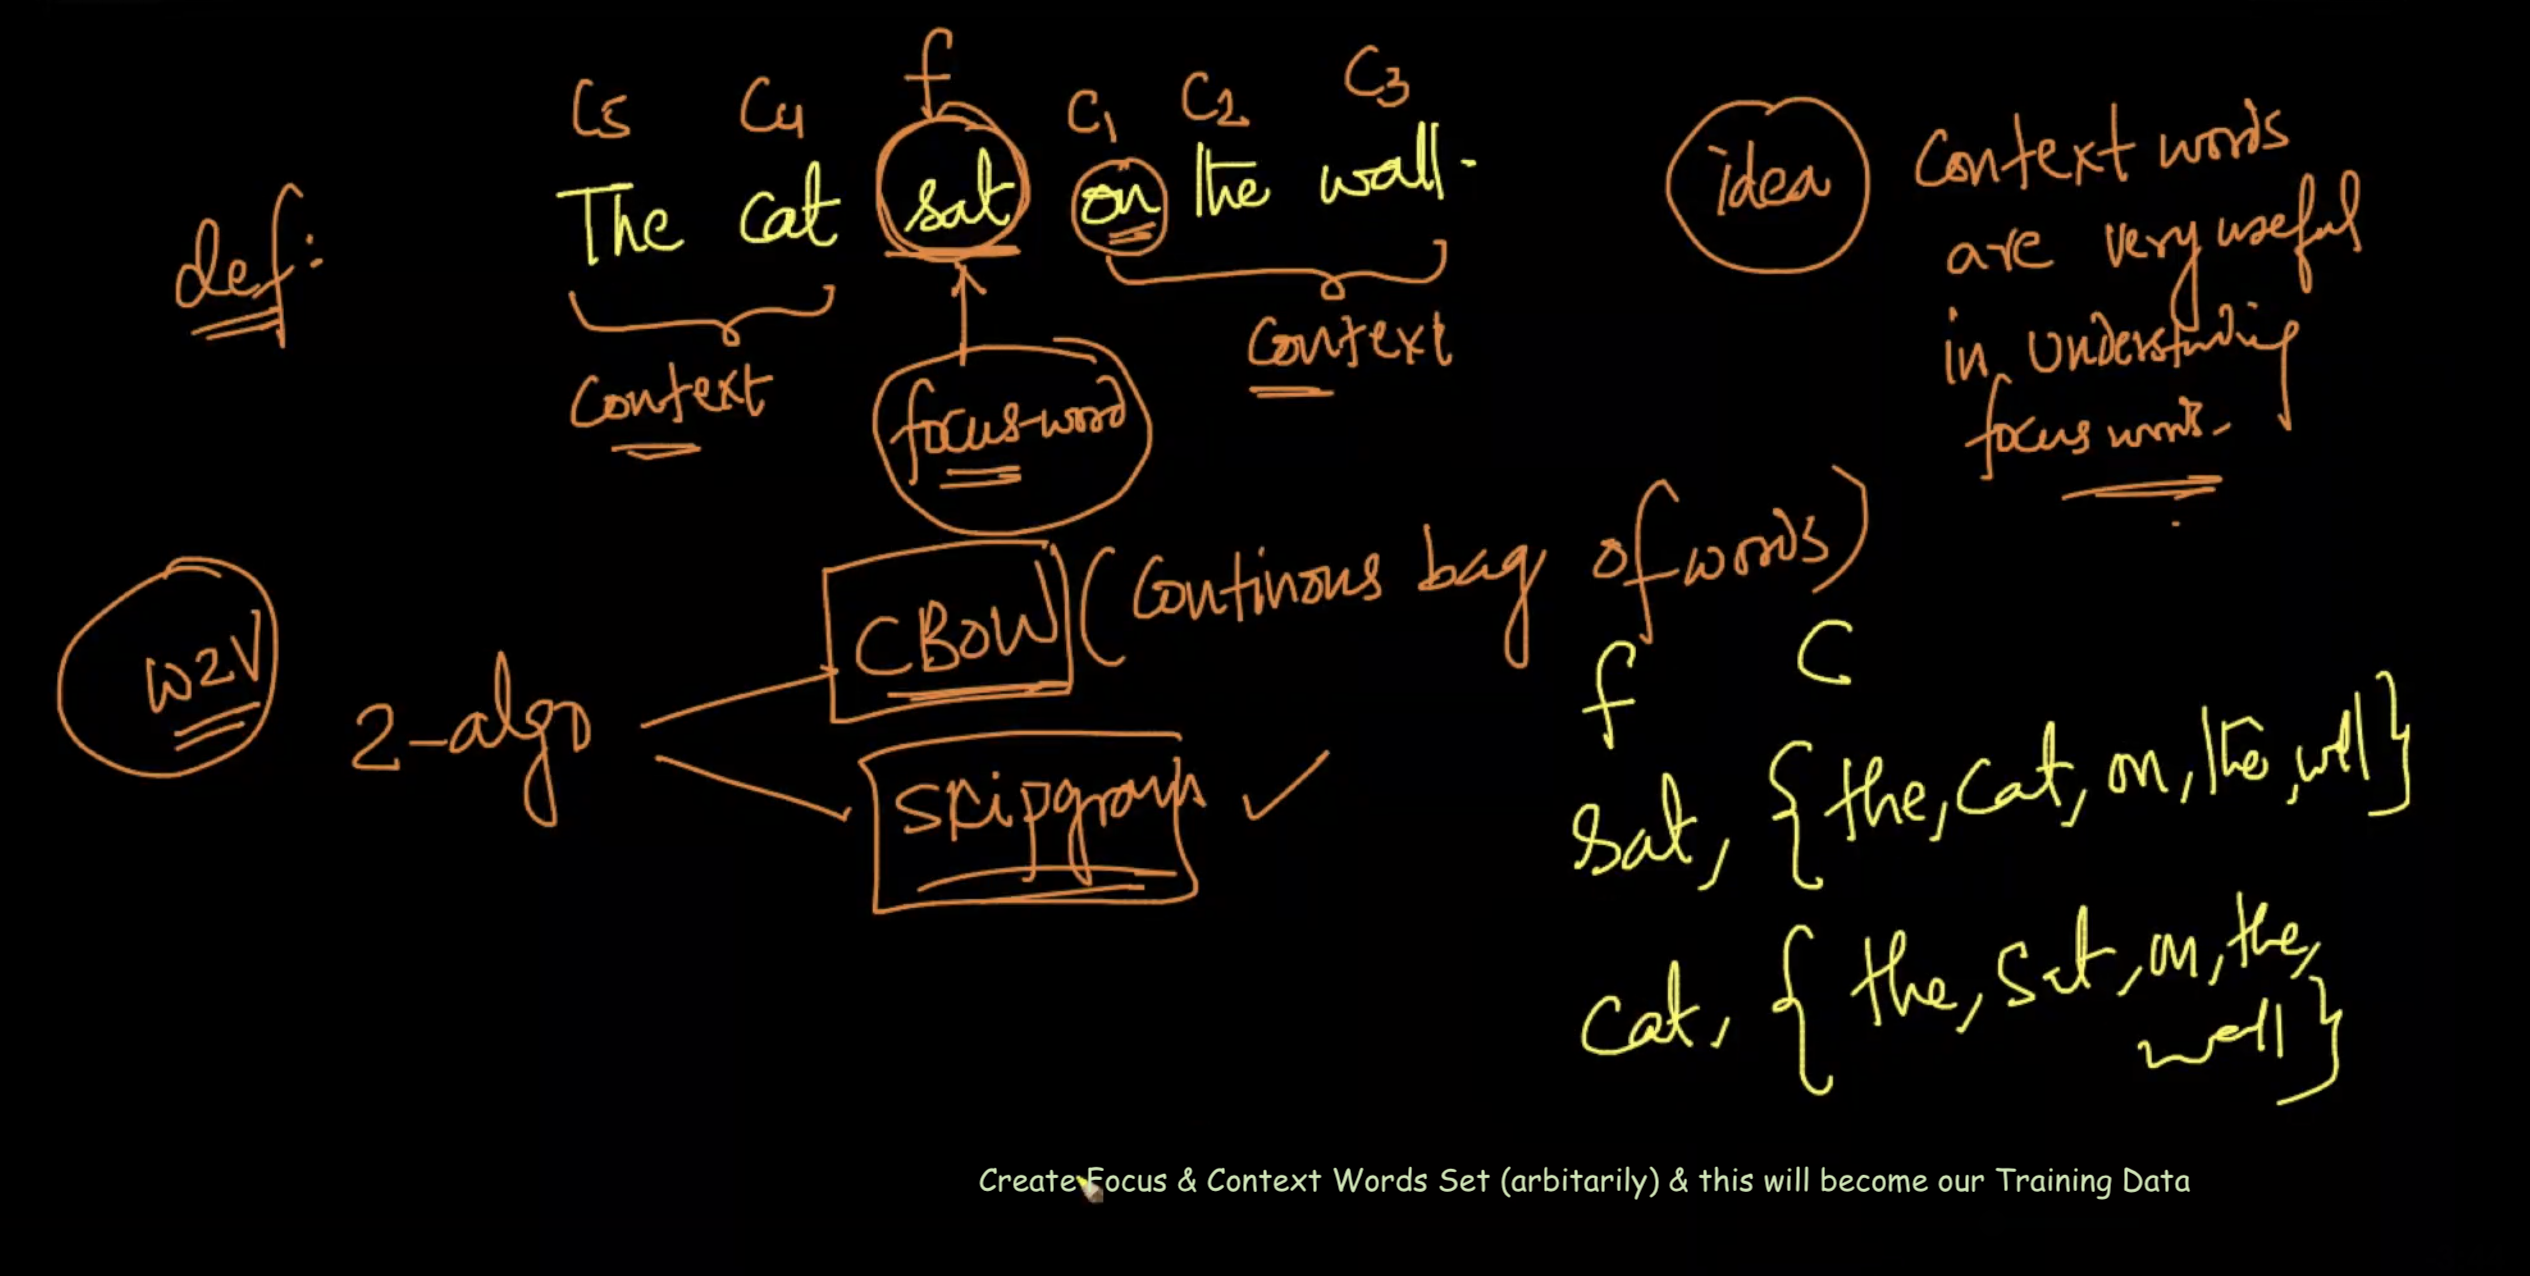 C5 C4 f C1 C2 C3
def: The cat sat on the wall.
Context focus-word Context
idea Context words
are very useful
in understanding
focus words.
w2V 2-algo
CBOW (Continous bag of words)
Skipgram ✓
f C
sat, {the, cat, on, the, wall}
cat, {the, sat, on, the,
wall}
Create Focus & Context Words Set (arbitarily) & this will become our Training Data